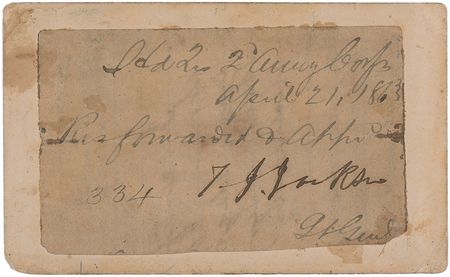 Hd Qrs 2d Army Corps
April 21, 1863
Res forwarded & Appro
334 T. J. Jackson
Lt Genl